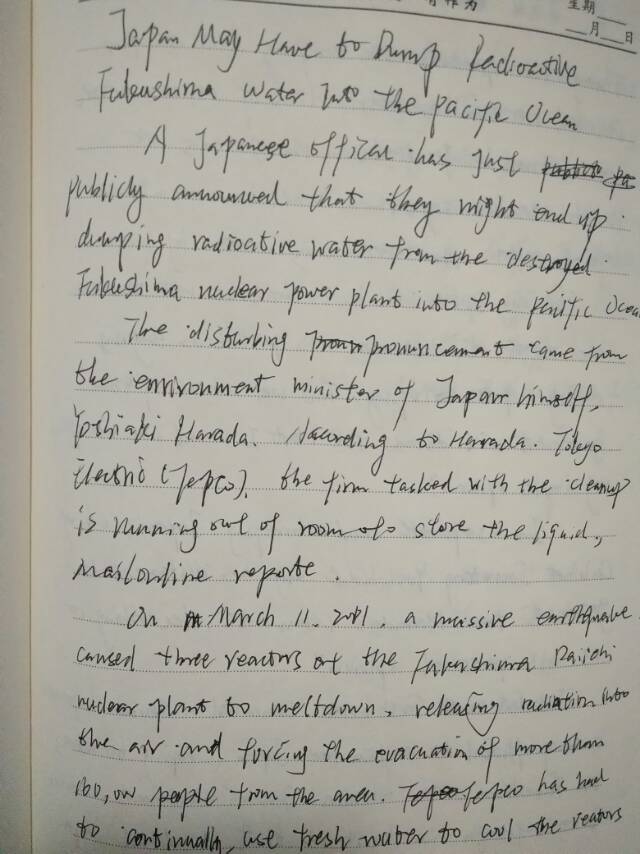 有作为
星期
月 日
Japan May Have to Dump Radioactive
Fukushima Water Into the pacific Ocean
A Japanese offical has just
publicly announced that they might end up
dumping radioactive water from the destroyed
Fukushima nuclear power plant into the pacific Ocea
The disturbing pronuncement came from
the environment minister of Japan himself,
Yoshiaki Harada. According to Harada. Tokyo
Electric (Tepco), the firm tasked with the cleanup
is running out of room to store the liquid,
mailonline reporte.
On March 11, 2011, a massive earthquake
caused three reactors at the Fukushima Daiichi
nuclear plant to meltdown, releasing radiation into
the air and forcing the evacuation of more than
160,000 people from the area. Tepco has had
to continually use fresh water to cool the reators